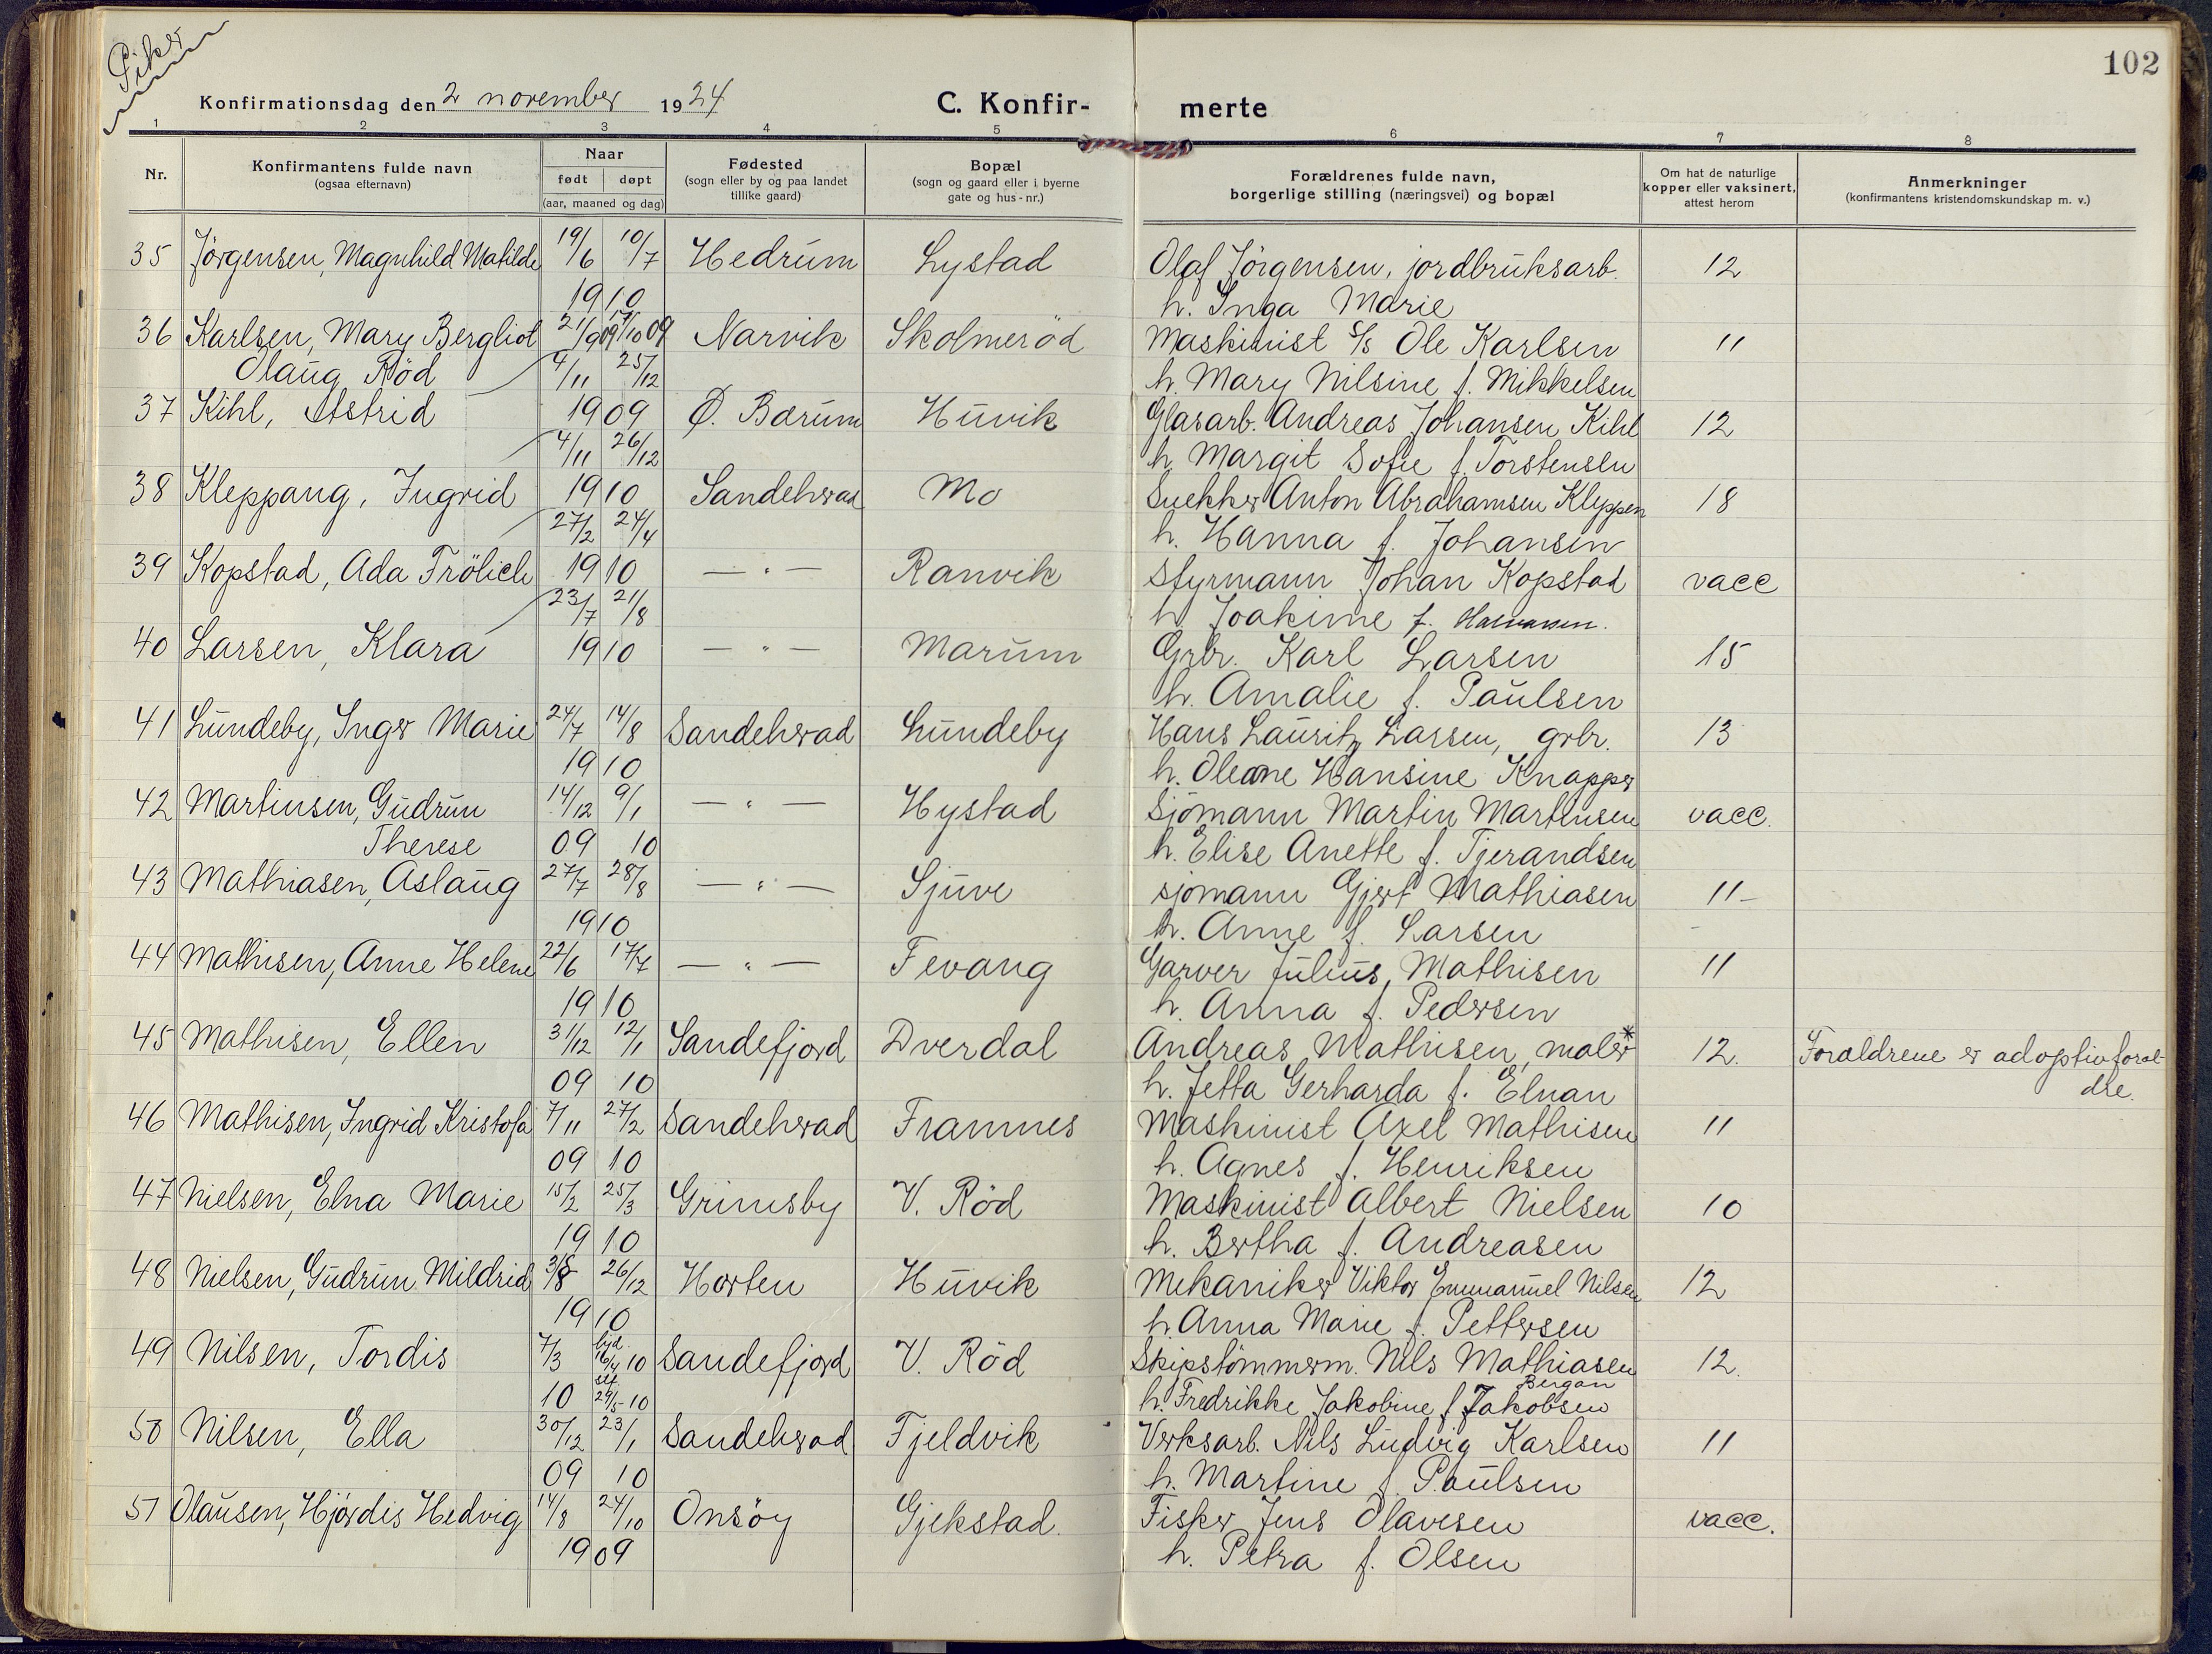 Piker
102
Konfirmationsdag den 2 november 1924
C. Konfir- merte
1 2 3 4 5 6 7 8
Nr.
Konfirmantens fulde navn
(ogsaa efternavn)
Naar
født døpt
(aar, maaned og dag)
Fødested
(sogn eller by og paa landet
tillike gaard)
Bopæl
(sogn og gaard eller i byerne
gate og hus-nr.)
Forældrenes fulde navn,
borgerlige stilling (næringsvei) og bopæl
Om hat de naturlige
kopper eller vaksinert,
attest herom
Anmerkninger
(konfirmantens kristendomskundskap m. v.)
35 Jörgensen, Magnhild Matilde 19/6 10/7 Hedrum Lystad Olaf Jörgensen, jordbruksarb. 12
1910 h. Inga Marie
36 Karlsen, Mary Bergliot 21/9 09 /10 09 Narvik Skolmeröd Maskinist S/S Ole Karlsen 11
Olaug Röd 4/11 25/12 h. Mary Nilsine f. Mikkelsen
37 Kihl, Astrid 1909 Ø. Bærum Huvik Glasarb. Andreas Johansen Kihl 12
4/11 26/12 h. Margit Sofie f. Torstensen
38 Kleppang, Ingrid 1910 Sandeherad Mo Snekker Anton Abrahamsen Kleppen 18
27/2 24/4 h. Hanna f. Johansen
39 Kopstad, Ada Frölich 1910 — " — Ranvik Styrmann Johan Kopstad vacc
23/7 21/8 h Joakime f.
40 Larsen, Klara 1910 — " — Marum Grbr. Karl Larsen 15
h. Amalie f. Paulsen
41 Lundeby, Inger Marie 24/7 14/8 Sandeherad Lundeby Hans Lauritz Larsen, grbr. 13
1910 h. Oleane Hansine Knapper
42 Martinsen, Gudrun 14/12 9/1 — " — Hystad Sjömann Martin Martinsen vacc.
Therese 09 10 h. Elise Anette f. Tjerandsen
43 Mathiasen, Aslaug 27/7 28/8 — " — Sjuve sjömann Gjert Mathiasen 11-
1910 h. Anne f. Larsen
44 Mathisen, Anne Helene 22/6 17/7 — " — Fevang Garver Julius Mathisen 11
1910 h. Anna f. Pedersen
45 Mathisen, Ellen 31/12 12/1 Sandefjord Dverdal Andreas Mathisen, maler* 12. Forældrene er adoptivforæl-
09 10 h. Jetta Gerharda f. Elnan dre.
46 Mathisen, Ingrid Kristofa 7/11 27/2 Sandeherad Framnes Maskinist Axel Mathisen 11
09 10 h. Agnes f. Henriksen
47 Nielsen, Elna Marie 15/2 25/3 Grimsby V. Röd Maskinist Albert Nielsen 10
1910 h. Bertha f. Andreasen
48 Nielsen, Gudrun Mildrid 26/12 Horten Huvik Mekaniker Viktor Emmanuel Nilsen 12
1910 h. Anna Marie f. Pettersen
49 Nilsen, Tordis 7/3 hjd. 16/4 10 Sandefjord V. Röd Skipstömmerm. Nils Mathiasen 12.
Bergan
10 stf. 29/5-10 h. Fredrikke Jakobine f. Jakobsen
50 Nilsen, Ella 30/12 23/1 Sandeherad Fjeldvik Verksarb. Nils Ludvig Karlsen 11
09 10 h. Martine f. Paulsen
51 Olausen, Hjördis Hedvig 14/8 24/10 Onsöy Gjekstad. Fisker Jens Olavesen vacc.
1909 h. Petra f. Olsen